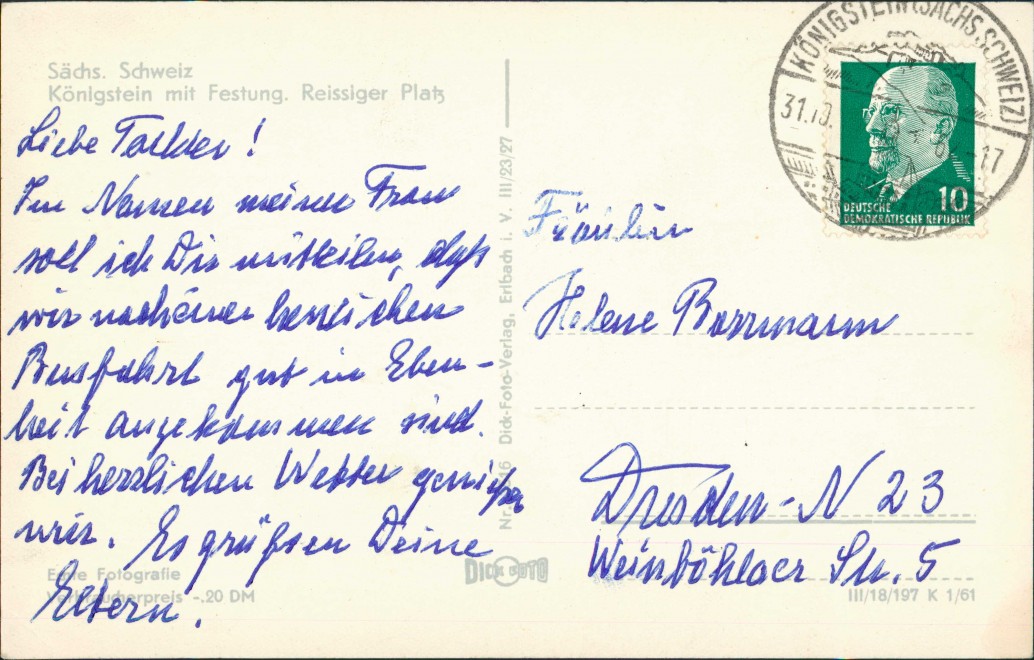 Sächs. Schweiz
Königstein mit Festung. Reissiger Platz
Liebe Tochter!
Im Namen meiner Frau
soll ich Dir mitteilen, daß
wir nach einer herrlichen
Busfahrt gut in Eben-
heit angekommen sind.
Bei herrlichen Wetter genießen
wir. Es grüßen Deine
Eltern.
Echte Fotografie
Verbraucherpreis -.20 DM
Dick-Foto-Verlag, Erlbach i. V. III/23/27
DICK FOTO
KÖNIGSTEIN (SÄCHS. SCHWEIZ)
31.10.
-17
10
DEUTSCHE
DEMOKRATISCHE REPUBLIK
Fräulein
Helene Borrmann
Dresden-N 23
Weinböhlaer Str. 5
III/18/197 K 1/61